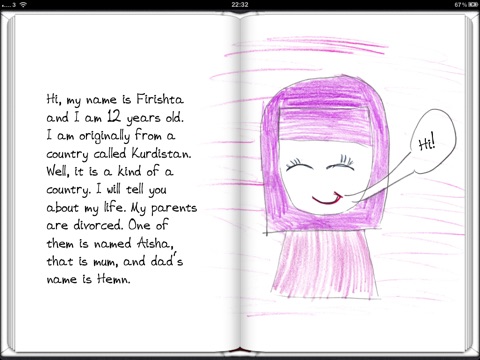 3
22:32
67%
Hi, my name is Firishta
and I am 12 years old.
I am originally from a
country called Kurdistan.
Well, it is a kind of a
country. I will tell you
about my life. My parents
are divorced. One of
them is named Aisha,
that is mum, and dad's
name is Hemn.
Hi!